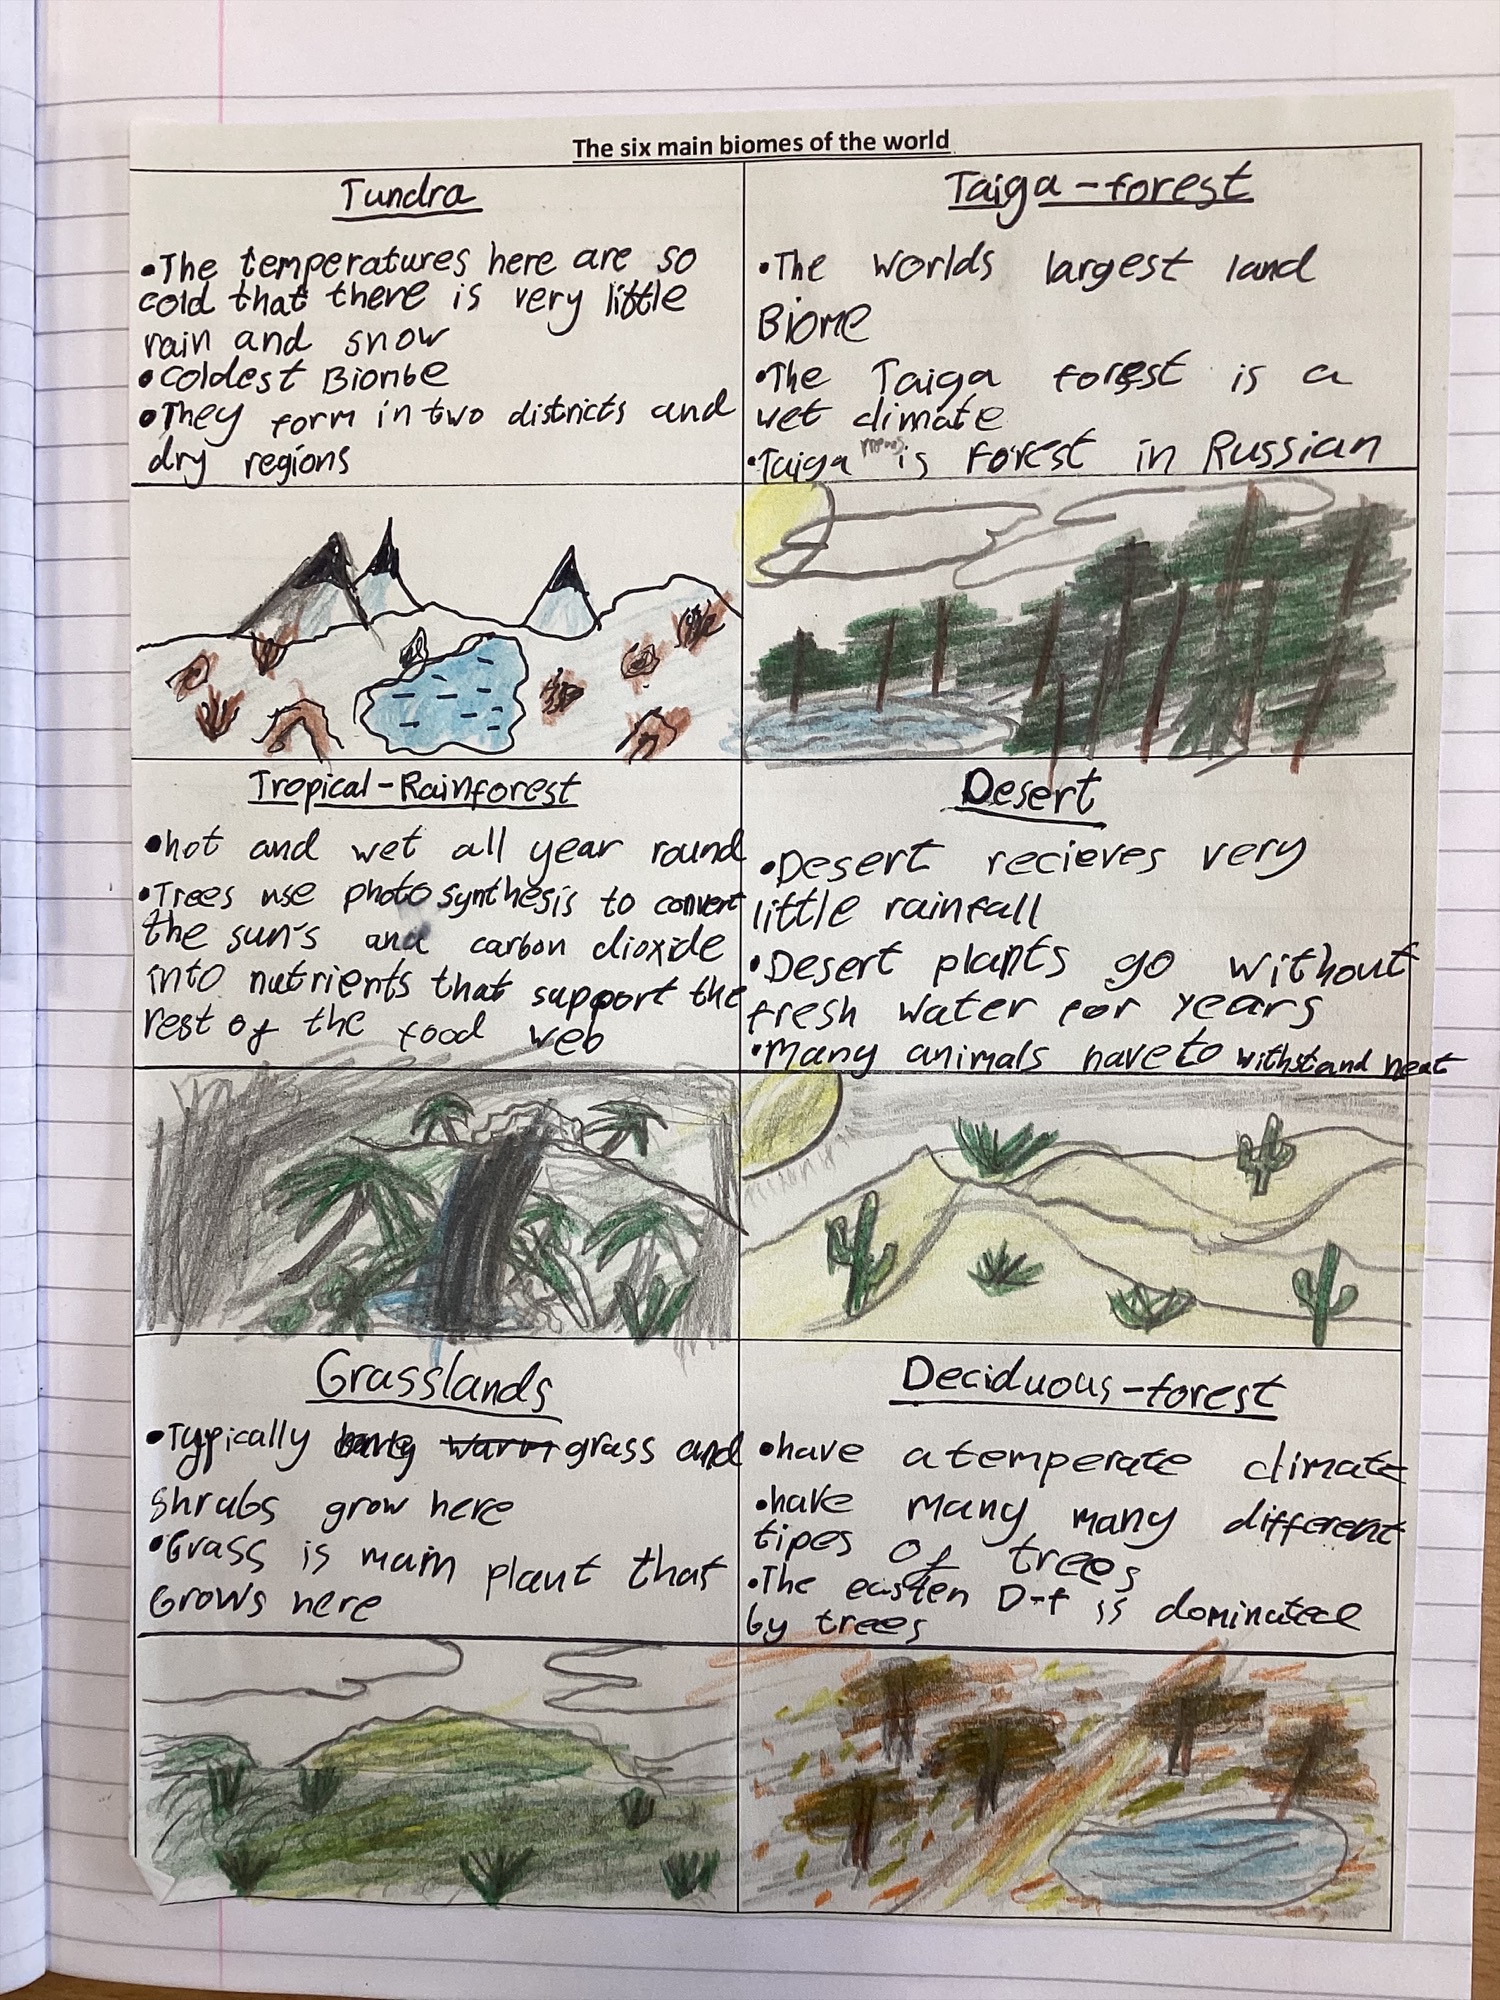 The six main biomes of the world
Tundra
•The temperatures here are so
cold that there is very little
rain and snow
•coldest Biombe
•They form in two districts and
dry regions
Taiga-forest
•The worlds largest land
Biome
•The Taiga forest is a
wet climate
•Taiga means is forest in Russian
Tropical-Rainforest
•hot and wet all year round
•Trees use photosynthesis to convert
the sun's and carbon dioxide
into nutrients that support the
rest of the food web
Desert
•Desert recieves very
little rainfall
•Desert plants go without
fresh water for years
•Many animals have to withstand heat
Grasslands
•Typically warm grass and
shrubs grow here
•Grass is main plant that
Grows here
Deciduous-forest
•have a temperate climate
•have many many different
tipes of trees
•The easten D-f is dominated
by trees